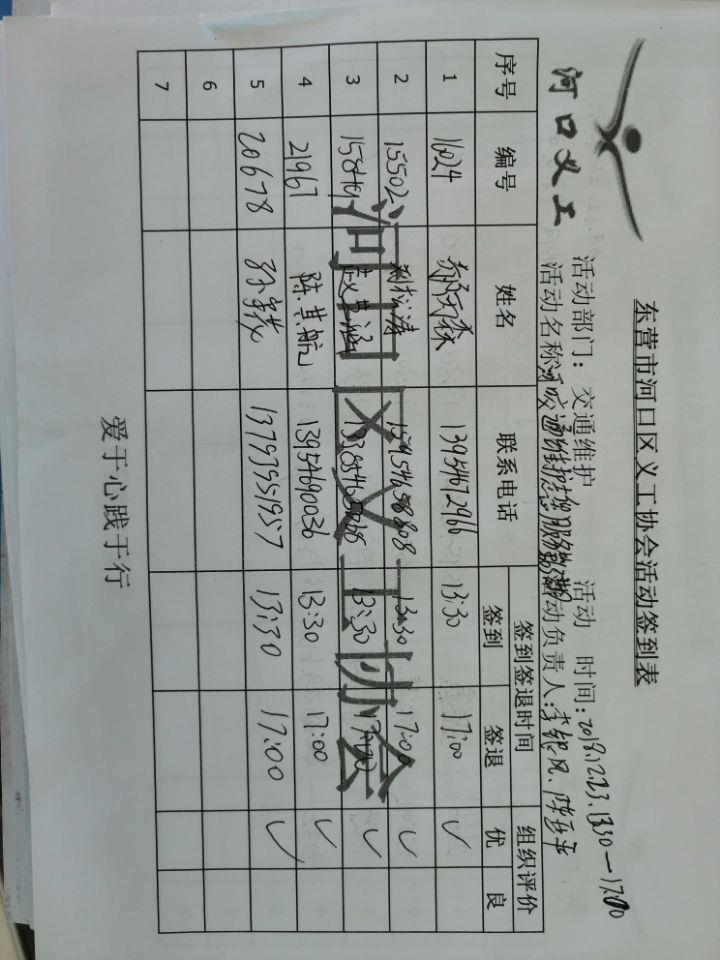 河口义工
东营市河口区义工协会活动签到表
活动部门：交通维护 活动 时间：2018.12.23.1330—17:00
活动名称 活动负责人：李银凤.
序号 编号 姓名 联系电话 签到签退时间 组织评价
签到 签退 优 良
1 16024 13954672966 13:30 17:00 ✓
2 15502 刘松涛 13:30 17:00 ✓
3 13:30 17:00 ✓
4 21967 陈其航 13954690036 13:30 17:00 ✓
5 20678 13793951957 13:30 17:00 ✓
6
7
河口区义工协会
爱于心践于行